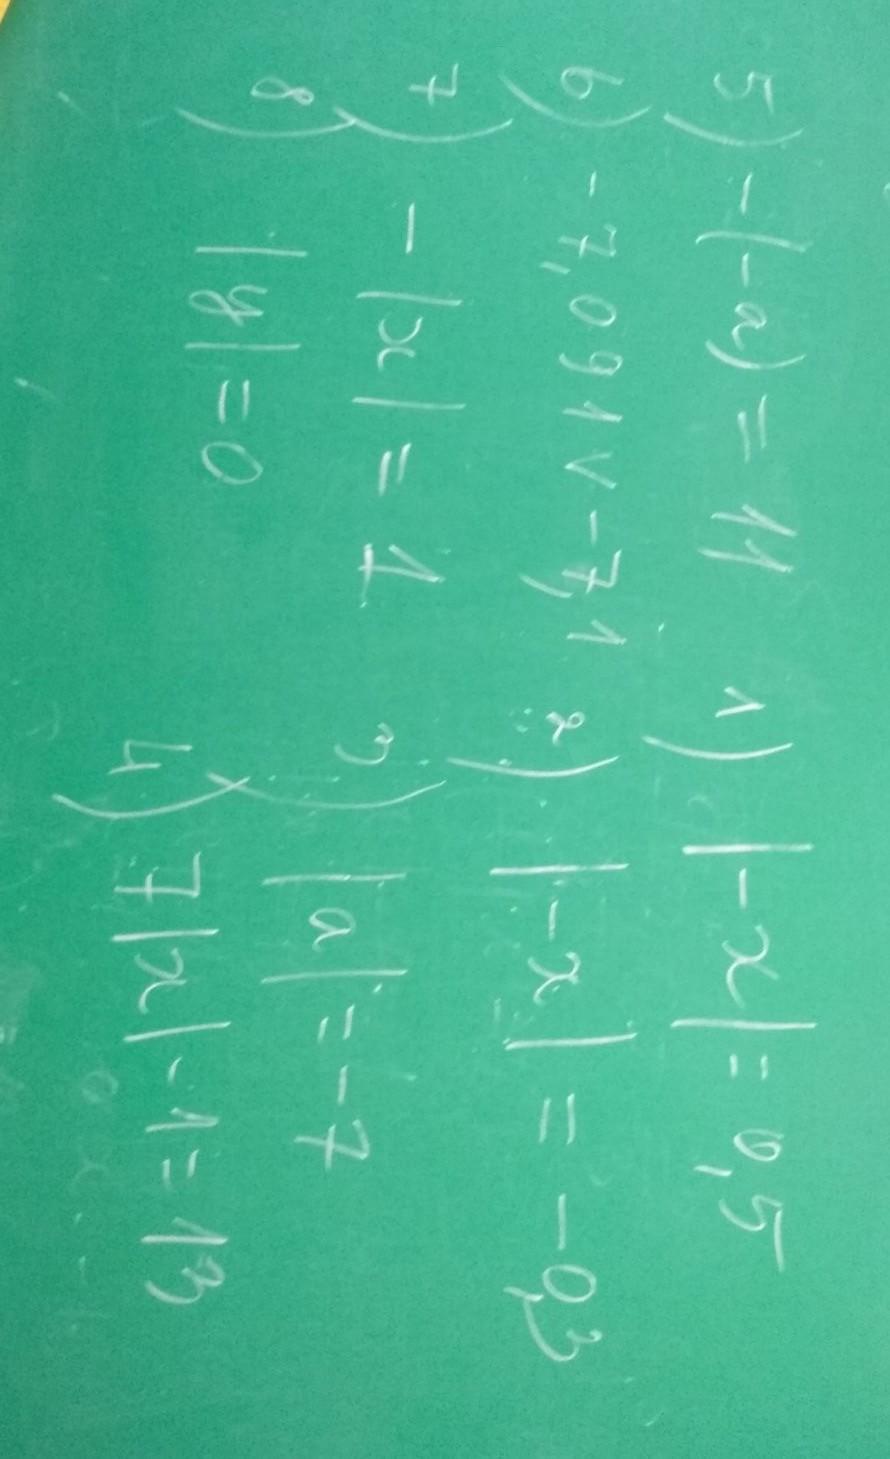 5) -(-a) = 11
6) -7,091 v -7,1
7) - |x| = 1
8) |y| = 0
1) |-x| = 0,5
2) |-x| = -0,3
3) |a| = -7
4) 7|x| - 1 = 13